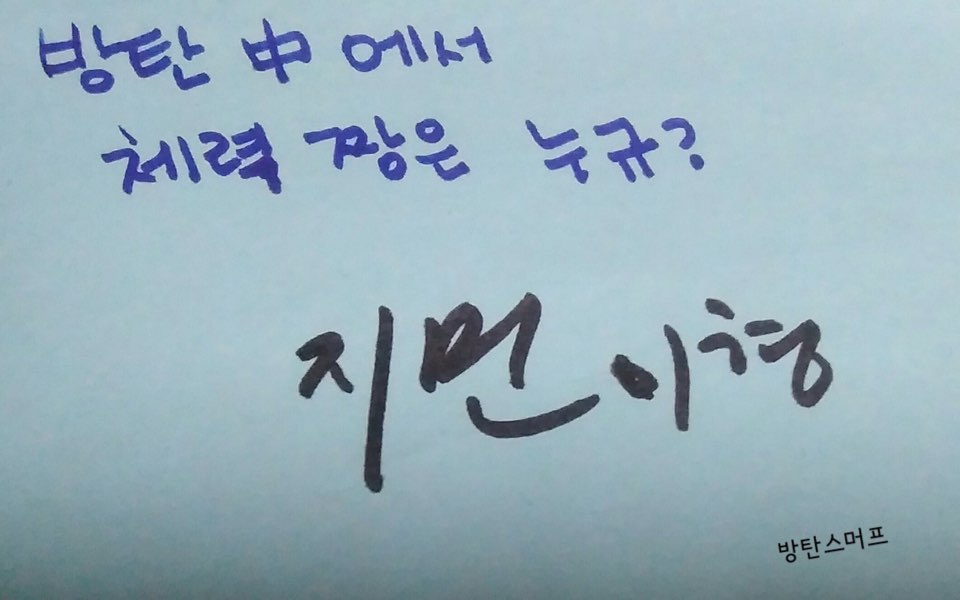 방탄 中에서
체력 짱은 누규?
지먼이형
방탄스머프